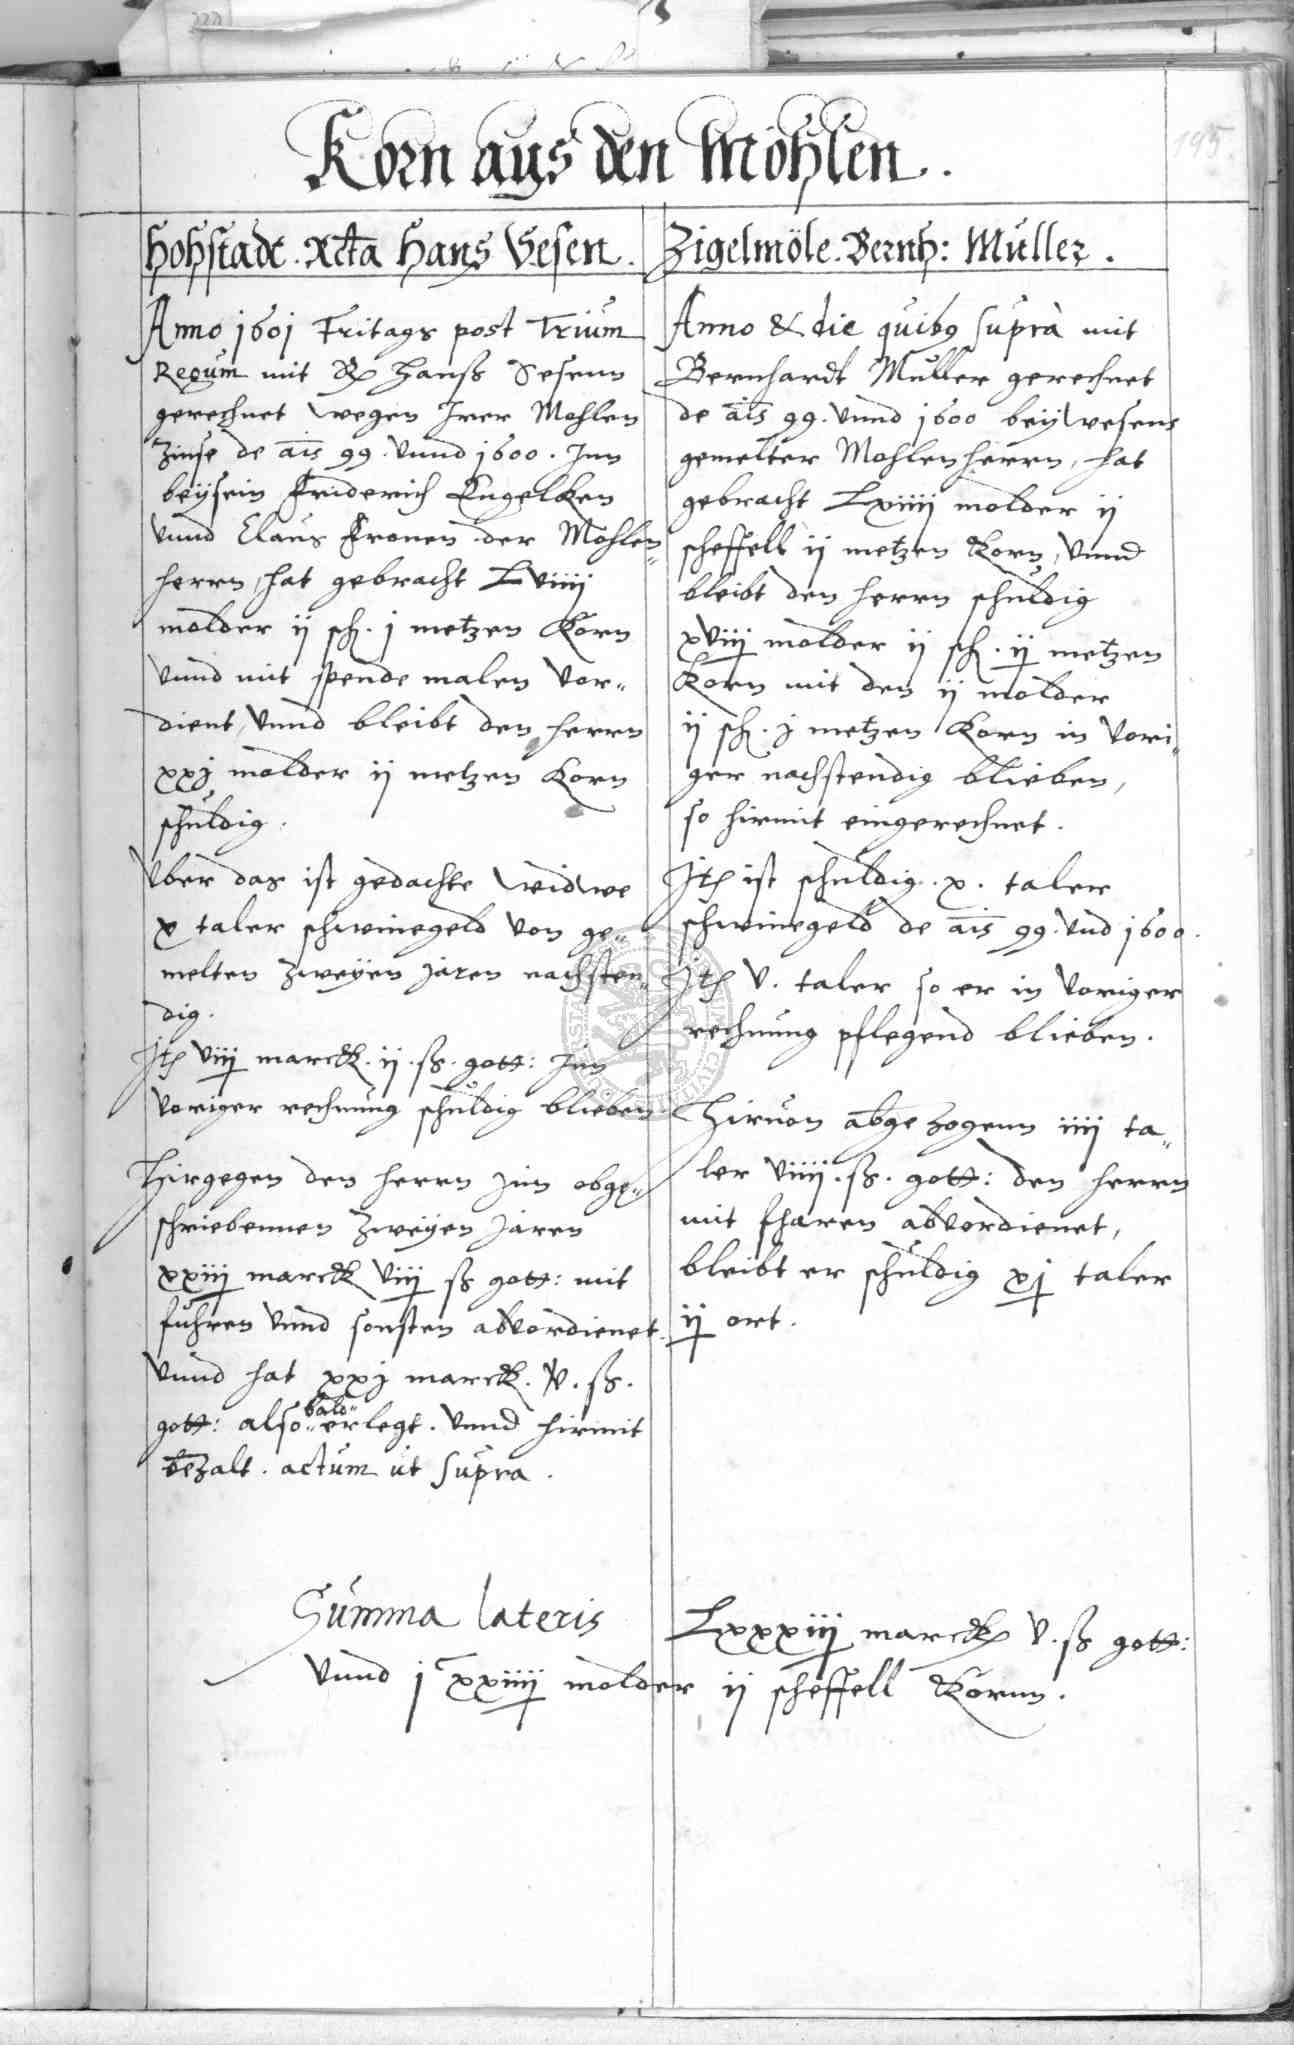 195.
Korn aus den Möhlen.
Hohstadt. Rcta Hans Vesen.
Anno 1601 Fritags post Trium
Regum mit Hanß Vesenn
gerechnet wegen Irer Mohlen
Zinse de ais 99. vnnd 1600. Inn
beysein Friderich Engelken
vnnd Claus Cronen der Mohlen„
herrn, hat gebracht Lviiij
molder ij sch. j metzen Korn
vnnd mit spende malen vor„
dient, vnnd bleibt den herrn
xxj molder ij metzen Korn
schuldig.
vber das ist gedachte widwe
x taler schwinegeld von ge„
melten zweyen jaren nachsten„
dig.
Jt viij marck. ij. ß. gott: Inn
voriger rechnung schuldig blieben
Hirgegen den herrn jnn obge„
schriebennen zweyen jaren
xxiij marck viij ß gott: mit
fuhren vnnd sonsten abvordienet.
vnnd hat xxj marck. v. ß.
gott: also„bald„erlegt. vnnd hirmit
bezalt. actum ut supra.
Zigelmöle. Bernh: Muller.
Anno & die quib9 suprà mit
Bernhardt Muller gerechnet
de ais 99. vnnd 1600 beywesens
gemelter Mohlenherrn, hat
gebracht Lxiiij molder ij
scheffell ij metzen Korn, vnnd
bleibt den herrn schuldig
xviij molder ij sch. ij metzen
Korn mit den ij molder
ij sch. j metzen Korn in vori„
ger nachstendig blieben,
so hirmit eingerechnet.
Jt ist schuldig. x. taler
schwinegeld de ais 99. vnd 1600.
Jt v. taler so er in voriger
rechnung pflegend blieben.
Hiruon abgezogenn iiij ta„
ler viiij. ß. gott: den herrn
mit fharen abvordienet,
bleibt er schuldig xj taler
ij ort.
Summa lateris Lxxxiij marck v. ß gott:
vnnd j xxiiij molder ij scheffell Kornn.